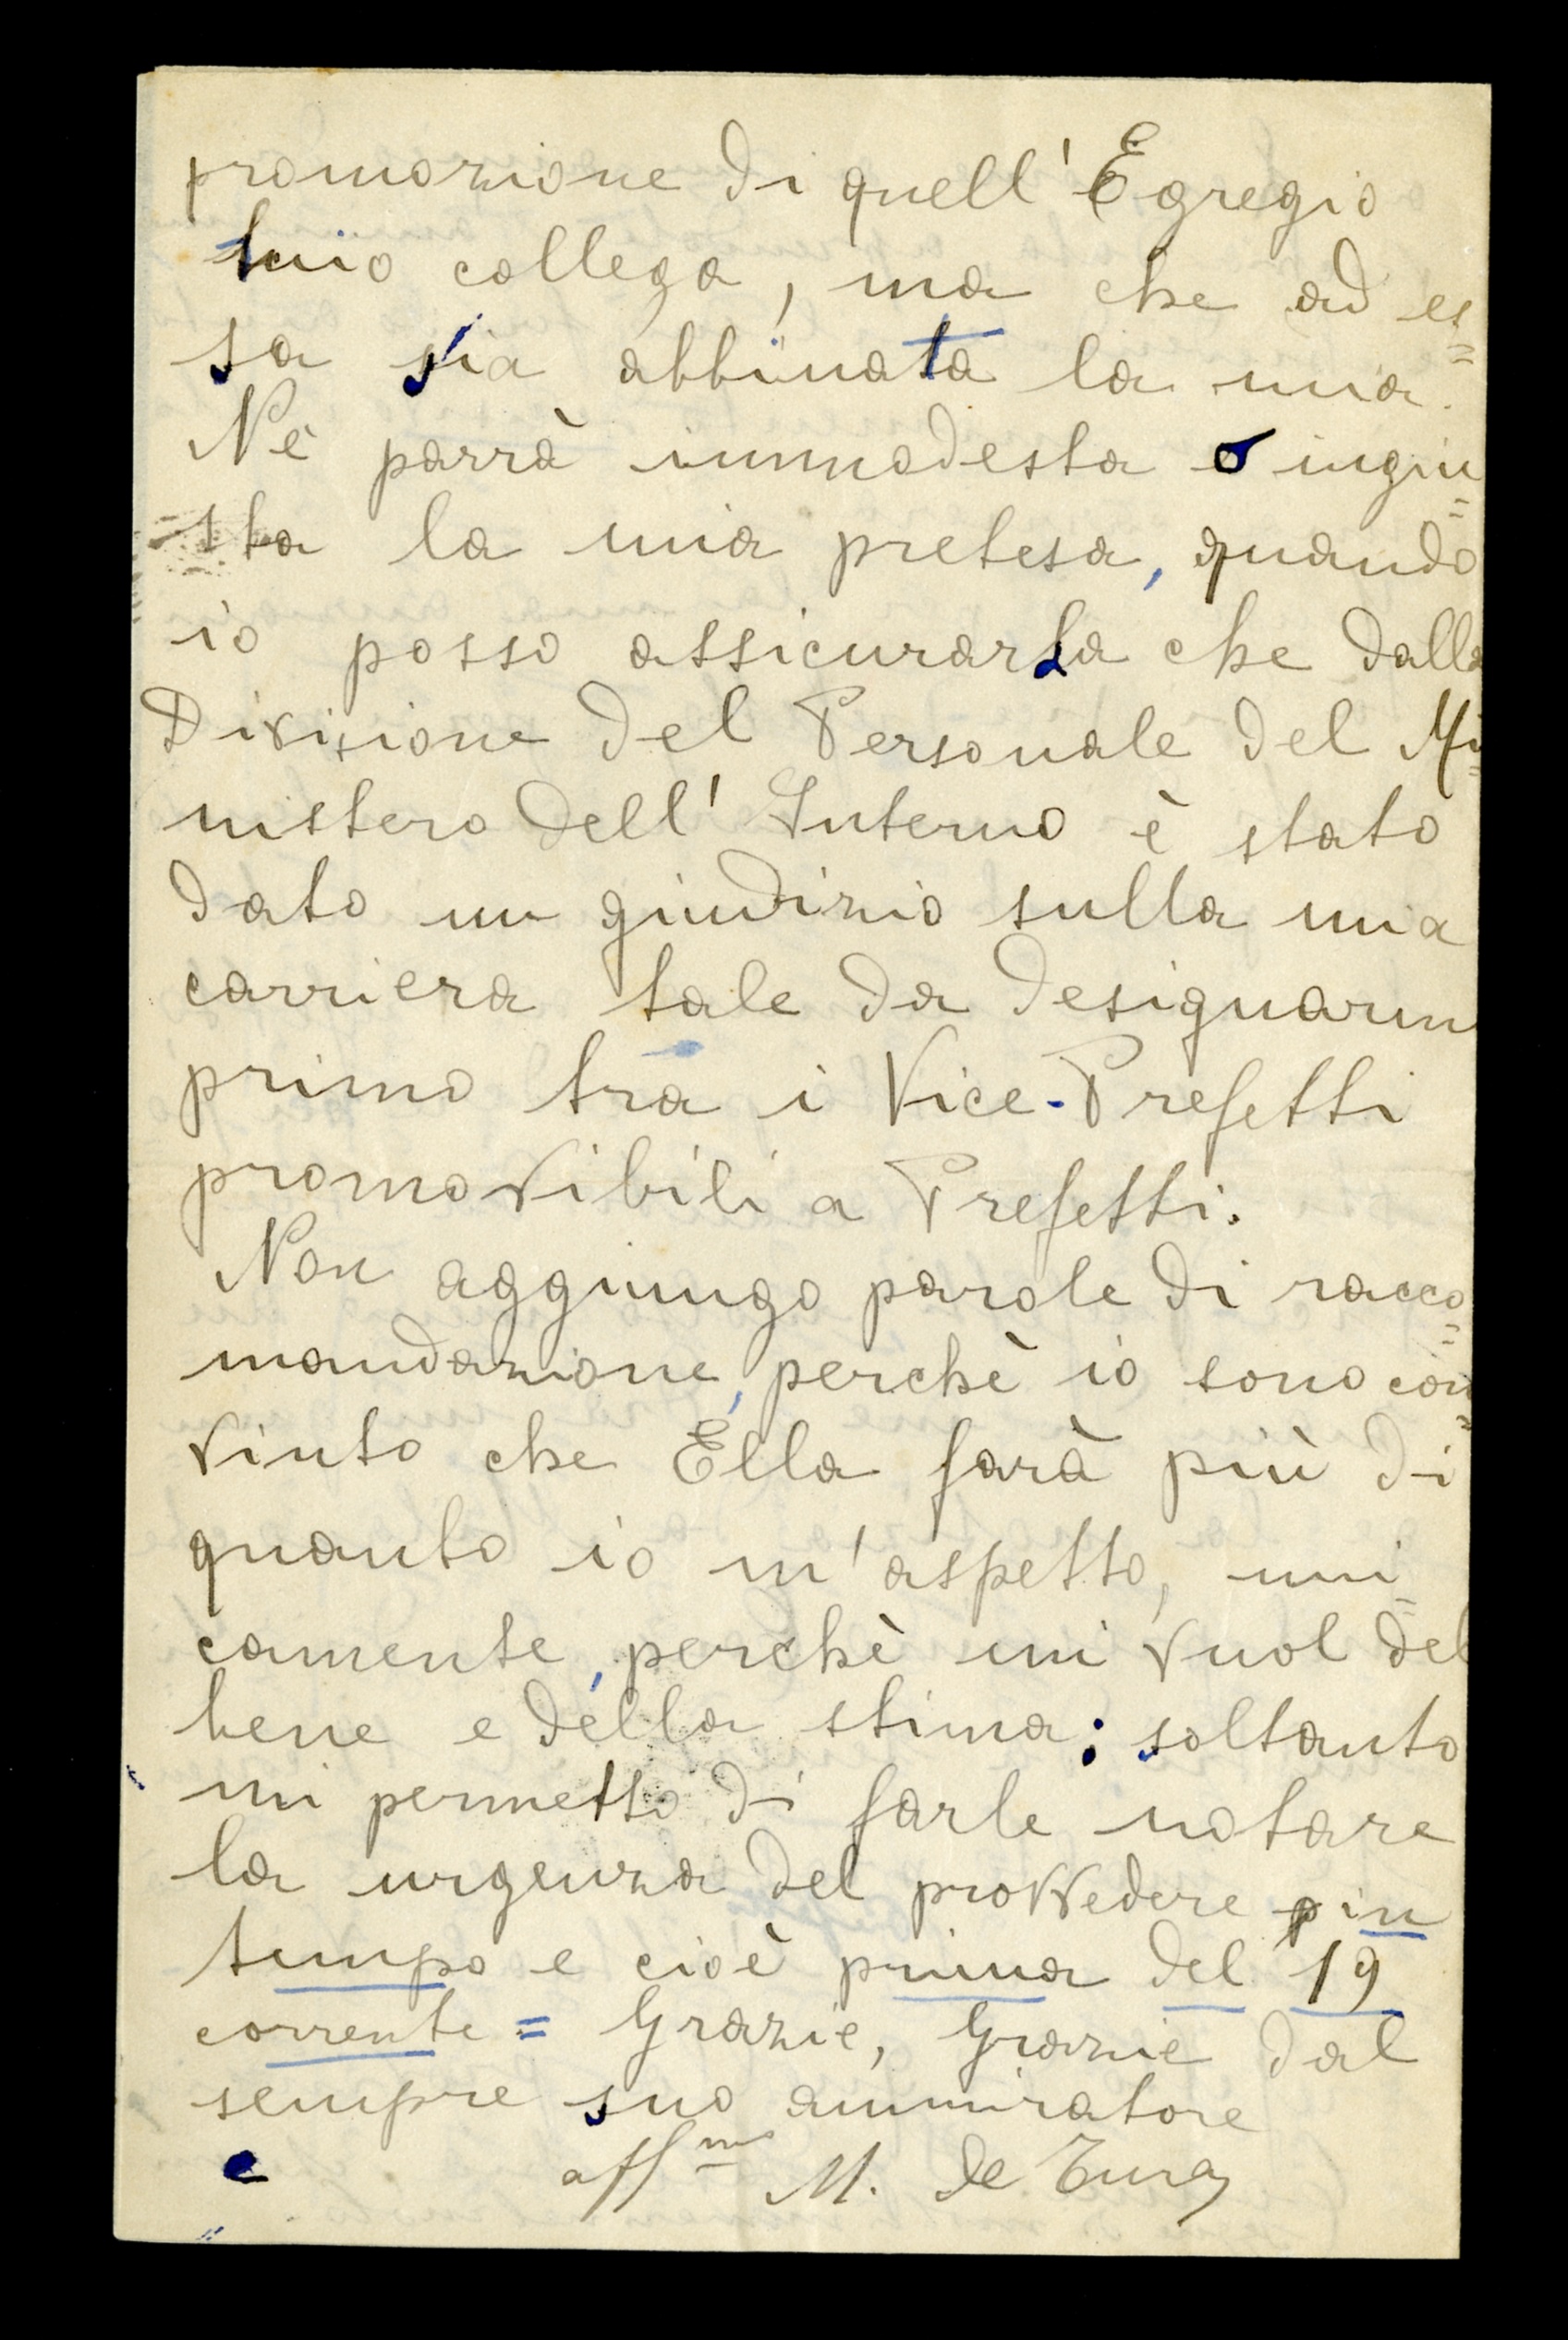 promozione di quell'Egregio
suo collega, ma che ad es=
sa sia abbinata la mia.
Nè parrà immodesta o ingiu=
sta la mia pretesa, quando
io posso assicurarLa che dalla
Divisione del Personale del Mi=
nistero dell'Interno è stato
dato un giudizio sulla mia
carriera tale da designarmi
primo tra i Vice-Prefetti
promovibili a Prefetti.
Non aggiungo parole di racco=
mandazione, perchè io sono con=
vinto che Ella farà più di
quanto io m'aspetto, uni=
camente, perchè mi vuol del
bene e della stima; soltanto
mi permetto di farle notare
la urgenza del provvedere in
tempo e cioè prima del 19
corrente = Grazie, Grazie dal
sempre suo ammiratore
e aff<sup>mo</sup> M. de Tura